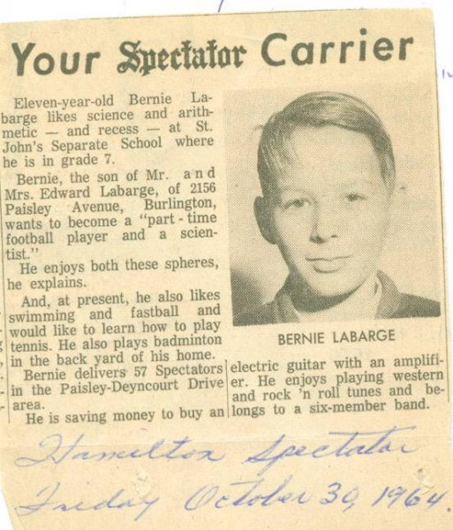 Your Spectator Carrier
Eleven-year-old Bernie La-
barge likes science and arith-
metic — and recess — at St.
John's Separate School where
he is in grade 7.
Bernie, the son of Mr. and
Mrs. Edward Labarge, of 2156
Paisley Avenue, Burlington,
wants to become a "part-time
football player and a scien-
tist."
He enjoys both these spheres,
he explains.
And, at present, he also likes
swimming and fastball and
would like to learn how to play
tennis. He also plays badminton
in the back yard of his home.
Bernie delivers 57 Spectators
in the Paisley-Deyncourt Drive
area.
He is saving money to buy an
BERNIE LABARGE
electric guitar with an amplifi-
er. He enjoys playing western
and rock 'n roll tunes and be-
longs to a six-member band.
Hamilton Spectator
Friday October 30, 1964.